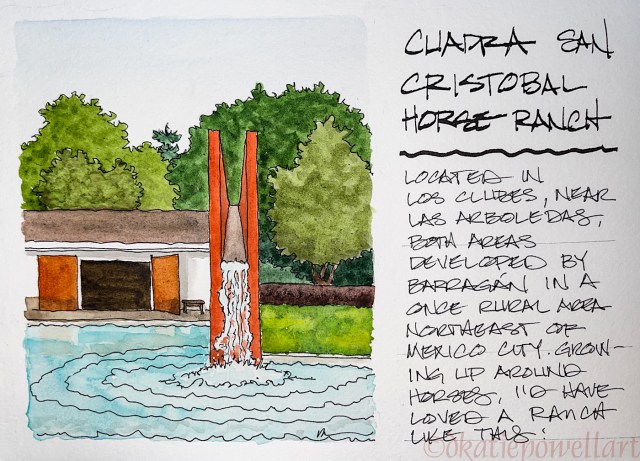 CUADRA SAN
CRISTOBAL
HORSE RANCH
LOCATED IN
LOS CLUBES, NEAR
LAS ARBOLEDAS,
BOTH AREAS
DEVELOPED BY
BARRAGÁN IN A
ONCE RURAL AREA
NORTHEAST OF
MEXICO CITY. GROW-
ING UP AROUND
HORSES, I'D HAVE
LOVED A RANCH
LIKE THIS!
©okatiepowellart